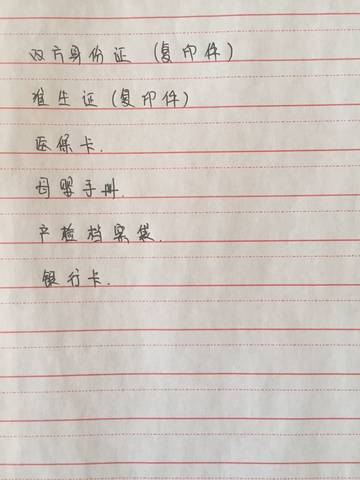 双方身份证（复印件）
准生证（复印件）
医保卡.
母婴手册.
产检档案袋.
银行卡.